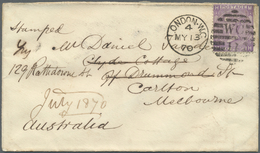 Stamped
Mr Daniel
LONDON·W.C
4
MY 13
70
WC
Clyde Cottage
129 Rathdowne St off Drummond St
Carlton
Melbourne
July 1870
Australia